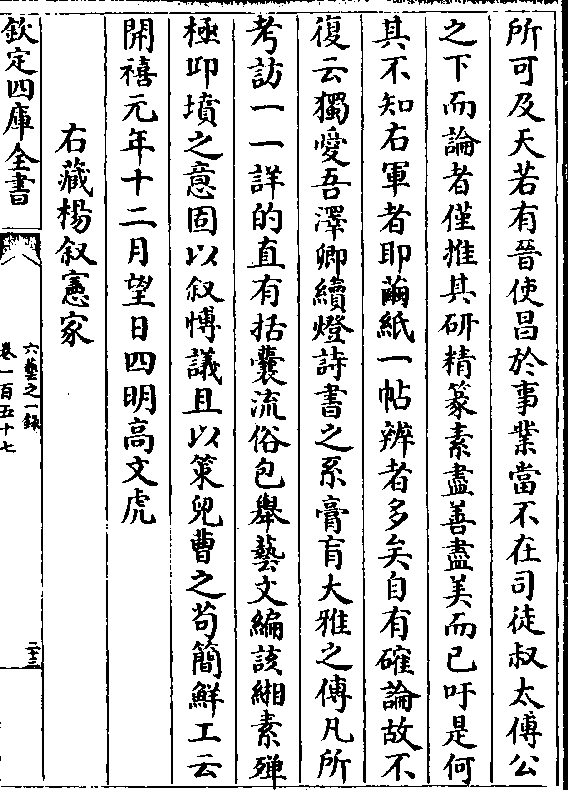 所可及天若有晉使昌於事業當不在司徒叔太傅公
之下而論者僅推其研精篆素盡善盡美而已吁是何
其不知右軍者耶繭紙一帖辨者多矣自有確論故不
復云獨愛吾澤卿續燈詩書之系膏肓大雅之傳凡所
考訪一一詳的直有括囊流俗包舉藝文編該緗素殫
極卭墳之意固以叙愽議且以策兒曹之苟簡鮮工云
開禧元年十二月望日四明高文虎
右藏楊叙憲家
欽定四庫全書
六藝之一録
卷一百五十七
二十三